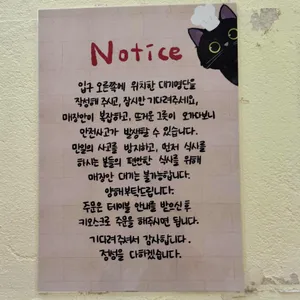 Notice
입구 오른쪽에 위치한 대기명단을
작성해 주시고, 잠시만 기다려주세요.
매장안이 복잡하고, 뜨거운 그릇이 오가다보니
안전사고가 발생할 수 있습니다.
만일의 사고를 방지하고, 먼저 식사를
하시는 분들의 편안한 식사를 위해
매장안 대기는 불가능합니다.
양해부탁드립니다.
주문은 테이블 안내를 받으신 후
키오스크로 주문을 해주시면 됩니다.
기다려주셔서 감사합니다.
정성을 다하겠습니다.